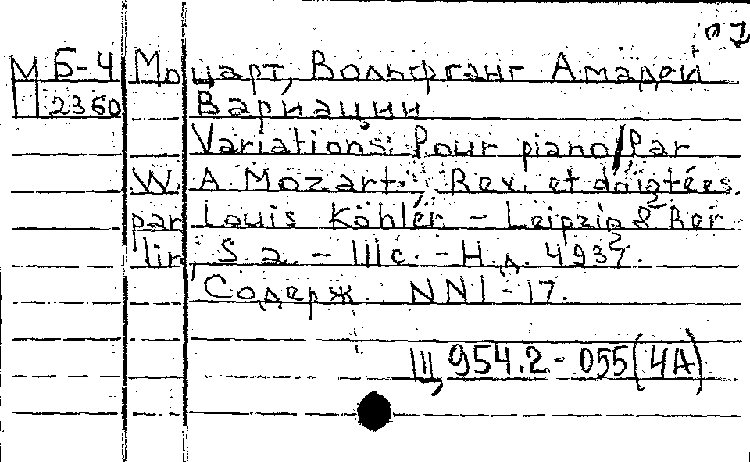 М Б-4 Моцарт, Вольфганг Амадей
П 2360 Вариации
Variations: Pour piano/Par
W. A. Mozart.; Rev. et doigtées
par Louis Köhler. - Leipzig & Ber
lin, S. a. - 111 с. - Н.д. 4937.
Содерж. NN1-17.
Щ 954.2-055(4А)